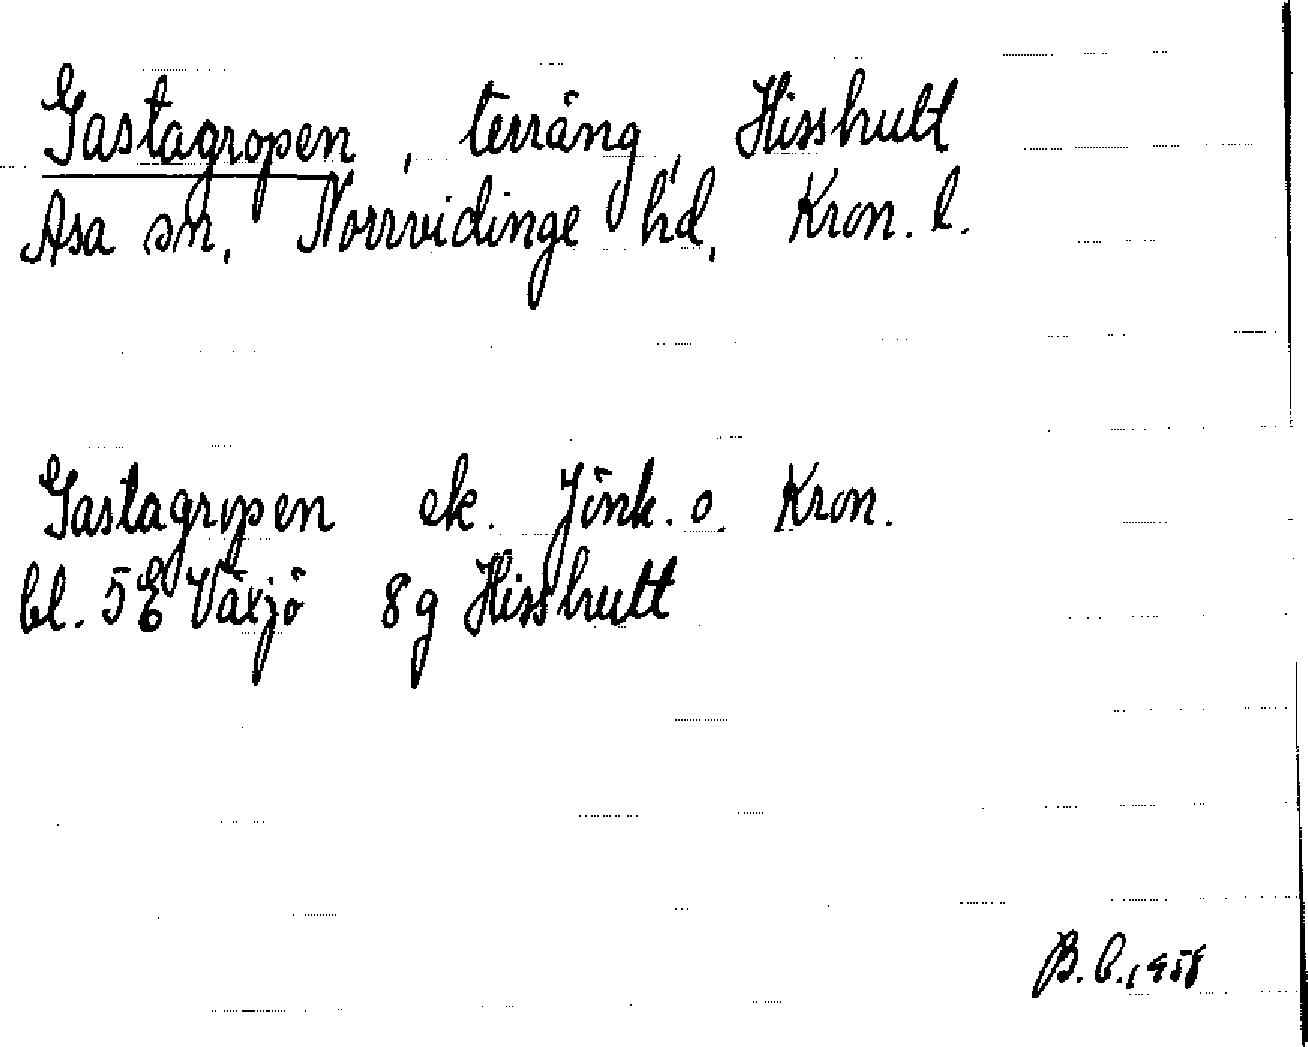 Gastagropen, terräng, Hisshult
Asa sn. Norrvidinge hd. Kron. l.
Gastagropen ek. Jönk. o. Kron.
bl. 5E Växjö 8g Hisshult
B.b.1958